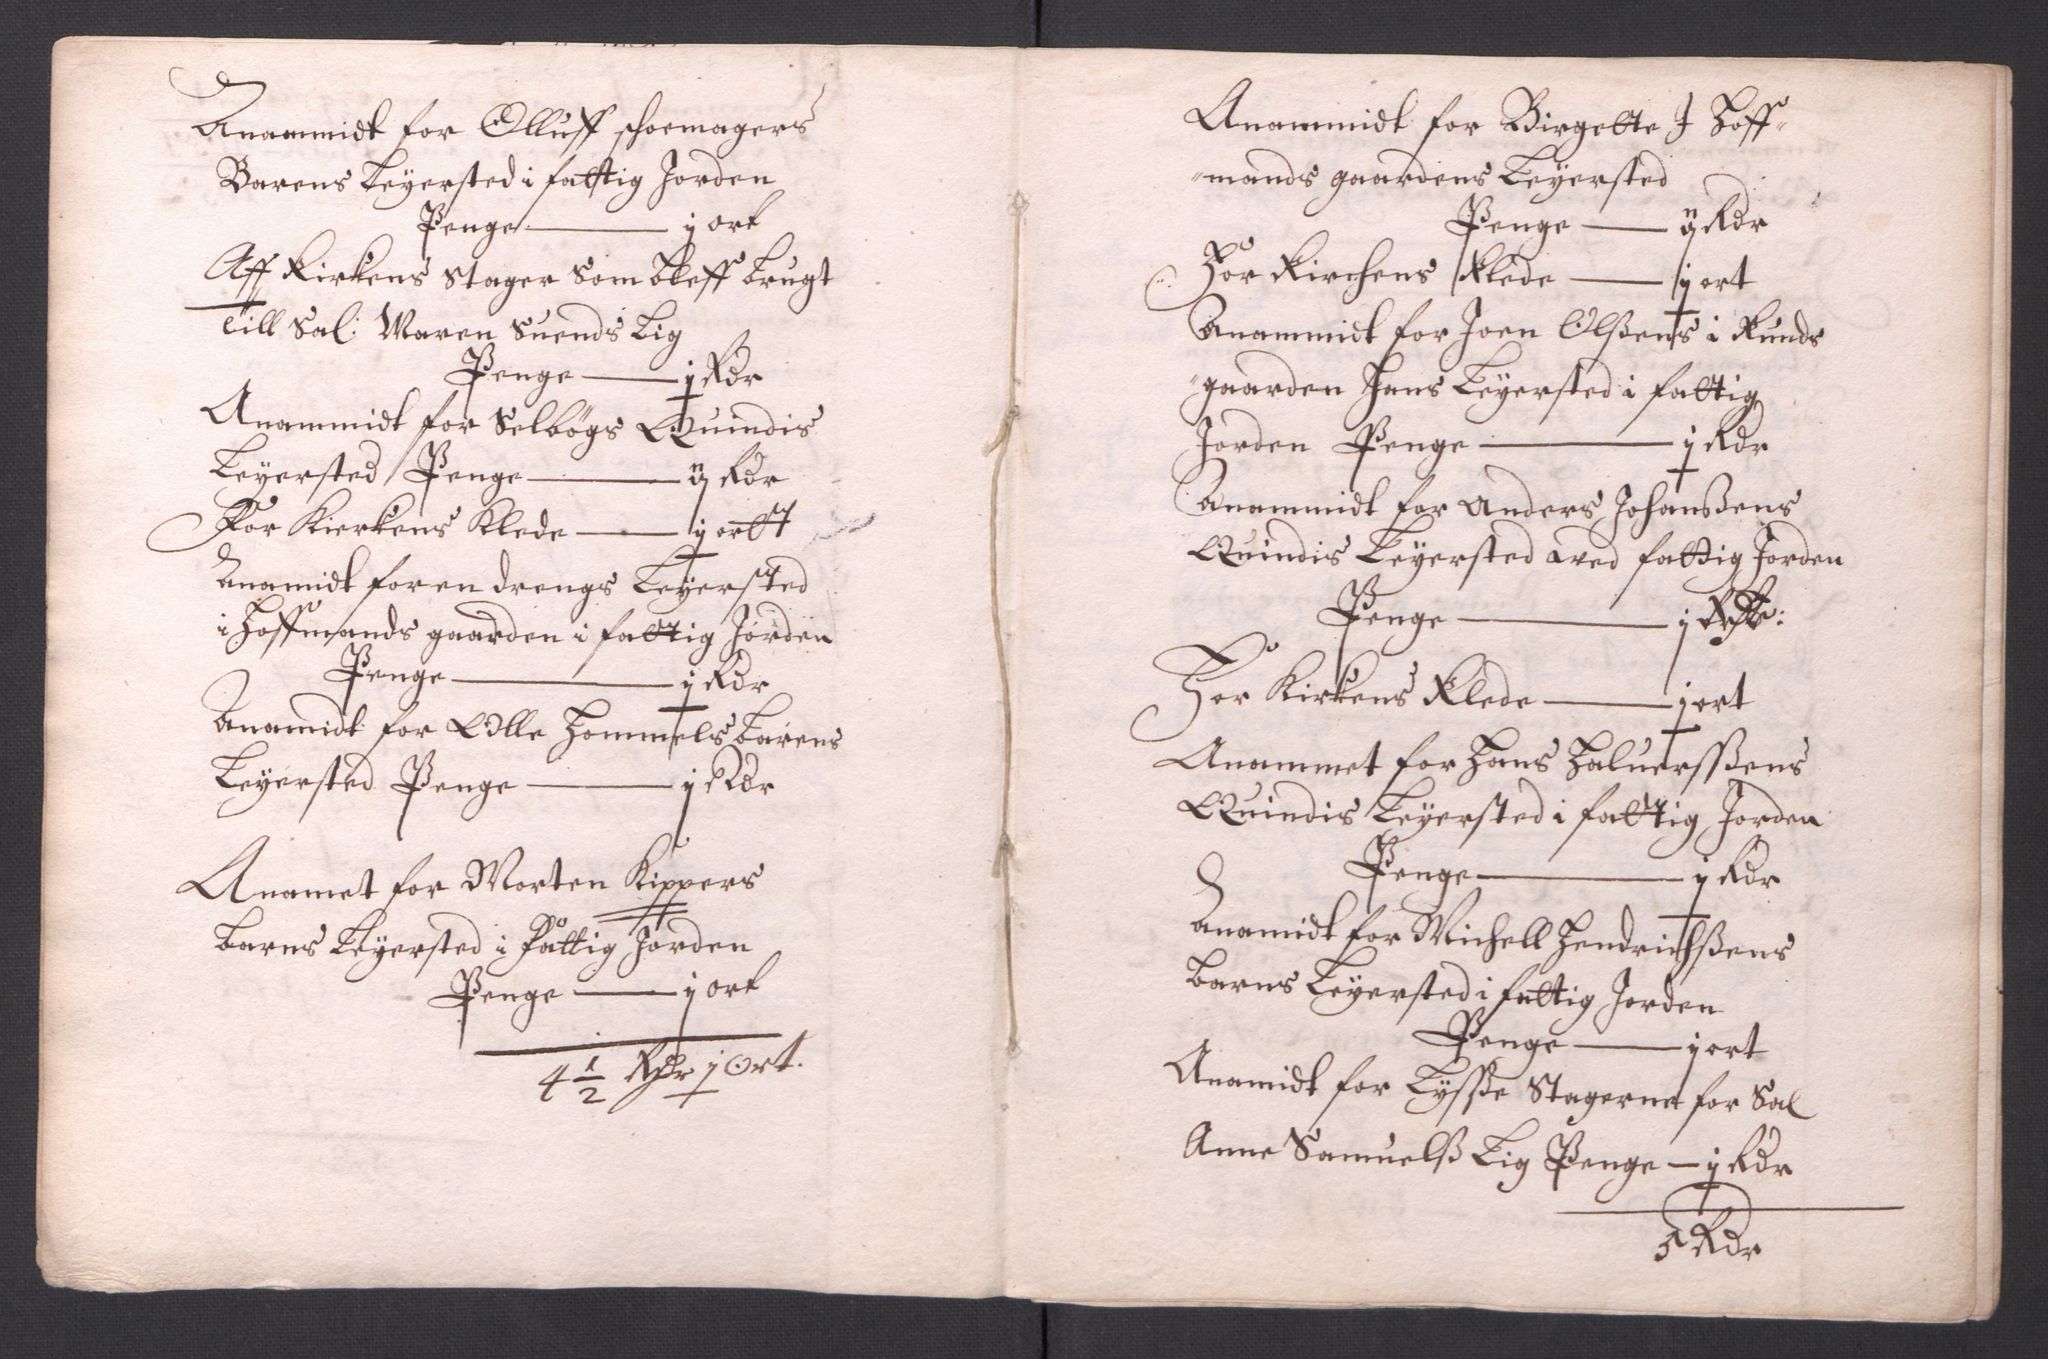 Anammidt for Olluff schoemagers
Barens Leyersted i fattig Jorden
Penge — j ort
Aff Kirkens Stager som bleff brugt
till Sal: Maren Suends Lig
Penge — j Rdr
Anammidt for Selbøgs Quindis
Leyersted Penge — ij Rdr
For Kierkens Klede — j ortt
Anamidt for en drengs Leyersted
i Hoffmands gaarden i fattig Jorden
Penge — j Rdr
Anamidt for Olle Hommels barens
Leyersted Penge — j Rdr
Anamet for Morten Kippers
barns Leyersted i fattig Jorden
Penge — j ort
4 1/2 Rdr j Ort.
Anammidt for Birgette J Hoff-
-mands gaardens Leyersted
Penge — ij Rdr
For Kirchens Klede — j ort
Anammidt for Joen Olßens i Kunds
-gaarden Hans Leyersted i fattig
Jorden Penge — j Rdr
Anammidt for Anders Johanßens
Quindis Leyersted wed fattig Jorden
Penge — j
For Kirkens Klede — j ort
Anammet for Hans Haluersßens
Quindis Leyersted i fattig Jorden
Penge — j Rdr
Anamidt for Michell Hendrichßens
barns Leyersted i fattig Jorden
Penge — j ort
Anamidt for Lysße Stagerne for Sal
Anne Samuelß Lig Penge — j Rdr
Rdr